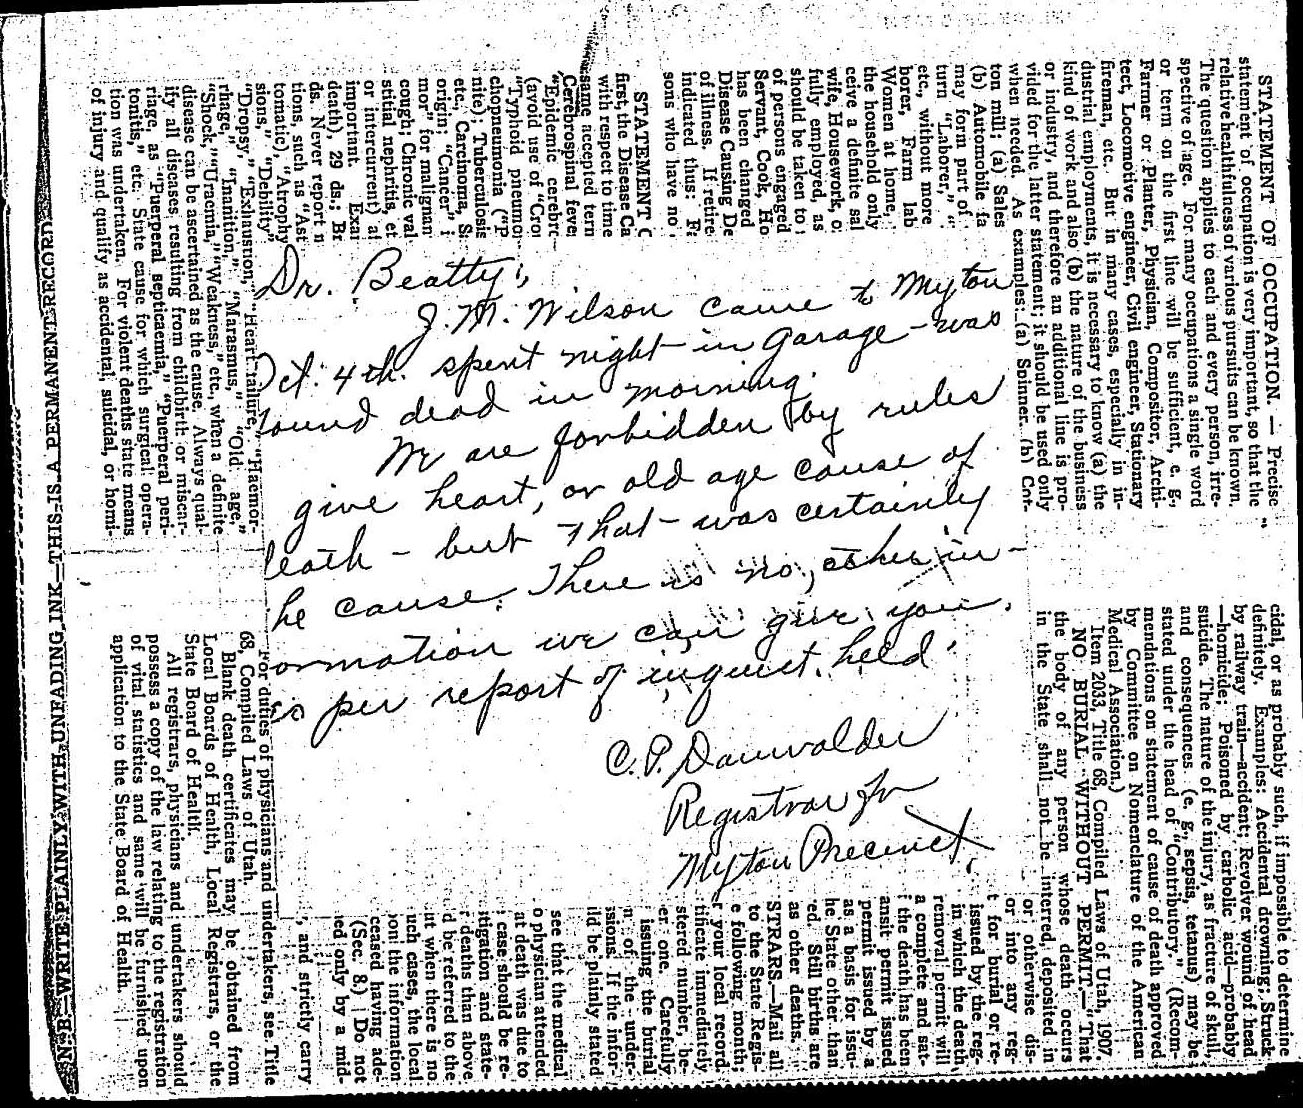 Dr. Beatty;
J. M. Wilson came to Myton
Oct. 4th. spent night in garage - was
found dead in morning.
We are forbidden by rules
give heart, or old age cause of
death - but that was certainly
he cause. There is no other in-
ormation we can give you.
as per report of inquest held.
C. P. Danvalder
Registrar for
Myton Precinct.
STATEMENT OF OCCUPATION. — Precise
statement of occupation is very important, so that the
relative healthfulness of various pursuits can be known.
The question applies to each and every person, irre-
spective of age. For many occupations a single word
or term on the first line will be sufficient, e. g.,
Farmer or Planter, Physician, Compositor, Archi-
tect, Locomotive engineer, Civil engineer, Stationary
fireman, etc. But in many cases, especially in in-
dustrial employments, it is necessary to know (a) the
kind of work and also (b) the nature of the business
or industry, and therefore an additional line is pro-
vided for the latter statement; it should be used only
when needed. As examples: (a) Spinner. (b) Cot-
ton mill; (a) Sales
(b) Automobile fa
may form part of
turn "Laborer," "
etc., without more
borer, Farm lab
Women at home,
the household only
ceive a definite sal
wife, Housework, o
fully employed, as
should be taken to
of persons engaged
Servant, Cook, Ho
has been changed
Disease Causing De
of illness. If retire
indicated thus: Fa
sons who have no
STATEMENT C
first, the Disease Ca
with respect to time
same accepted tern
Cerebrospinal feve
"Epidemic cerebr
(avoid use of "Cro
"Typhoid pneumon
chopneumonia ("P
nite); Tuberculosis
etc., Carcinoma, S
origin; "Cancer" i
mor" for malignan
cough; Chronic val
stitial nephritis, et
or intercurrent) af
important. Exam
death), 29 ds.; Br
ds. Never report n
tions, such as "Ast
tomatic), "Atrophy
sions," "Debility"
"Dropsy," "Exhaustion," "Heart failure," "Haemor-
rhage," "Inanition," "Marasmus," "Old age,"
"Shock," "Uraemia," "Weakness," etc., when a definite
disease can be ascertained as the cause. Always qual-
ify all diseases resulting from childbirth or miscar-
riage, as "Puerperal septicaemia," "Puerperal peri-
tonitis," etc. State cause for which surgical opera-
tion was undertaken. For violent deaths state means
of injury and qualify as accidental, suicidal, or homi-
cidal, or as probably such, if impossible to determine
definitely. Examples: Accidental drowning; Struck
by railway train—accident; Revolver wound of head
—homicide; Poisoned by carbolic acid—probably
suicide. The nature of the injury, as fracture of skull,
and consequences (e. g., sepsis, tetanus) may be
stated under the head of "Contributory." (Recom-
mendations on statement of cause of death approved
by Committee on Nomenclature of the American
Medical Association.)
Item 2033, Title 68, Compiled Laws of Utah, 1907.
NO BURIAL WITHOUT PERMIT.—That
the body of any person whose death occurs
in the State shall not be interred, deposited in
or otherwise dis-
or into any reg-
t for burial or re-
issued by the reg-
in which the death
removal permit will
a complete and sat-
f the death has been
ansit permit issued
permit issued by a
as a basis for issu-
he State other than
ed. Still births are
as other deaths.
STRARS.—Mail all
to the State Regis-
e following month;
r your local record.
tificate immediately
stered number, be-
er one. Carefully
issuing the burial
n of the under-
issions. If the infor-
ild be plainly stated
see that the medical
o physician attended
at death was due to
case should be re-
itigation and state-
r deaths than above
d be referred to the
ut when there is no
uch cases, the local
on the information
ceased having ade-
(Sec. 8.) Do not
ied only by a mid-
, and strictly carry
For duties of physicians and undertakers, see Title
68, Compiled Laws of Utah.
Blank death certificates may be obtained from
Local Boards of Health, Local Registrars, or the
State Board of Health.
All registrars, physicians and undertakers should
possess a copy of the law relating to the registration
of vital statistics and same will be furnished upon
application to the State Board of Health.
N. B.—WRITE PLAINLY WITH UNFADING INK—THIS IS A PERMANENT RECORD